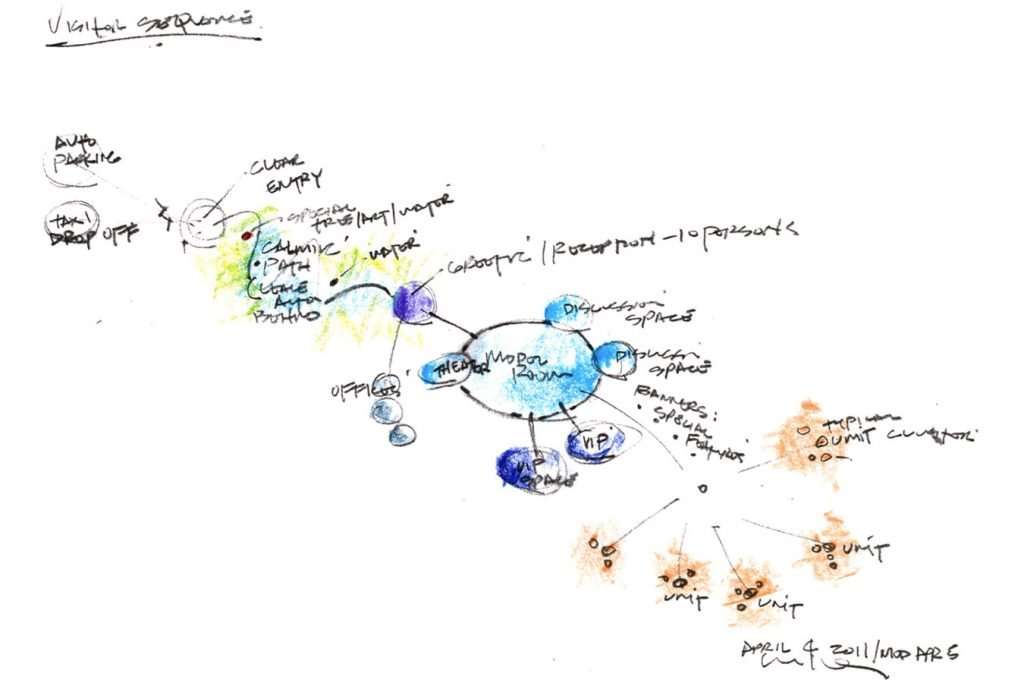 VISITOR SEQUENCE
AUTO
PARKING
TAXI
DROP OFF
CLEAR
ENTRY
SPECIAL
TREE/ART/WATER
CALMING
PATH
WATER
LEAVE
AUTO
BEHIND
GREETING/RECEPTION-10 PERSONS
DISCUSSION
SPACE
DISCUSSION
SPACE
THEATER
MODEL
ROOM
OFFICES
BANNERS:
SPECIAL
FEATURES
VIP
VIP
SPACE
TYPICAL
UNIT CLUSTER
UNIT
UNIT
UNIT
APRIL 4 2011/MOD APR 5